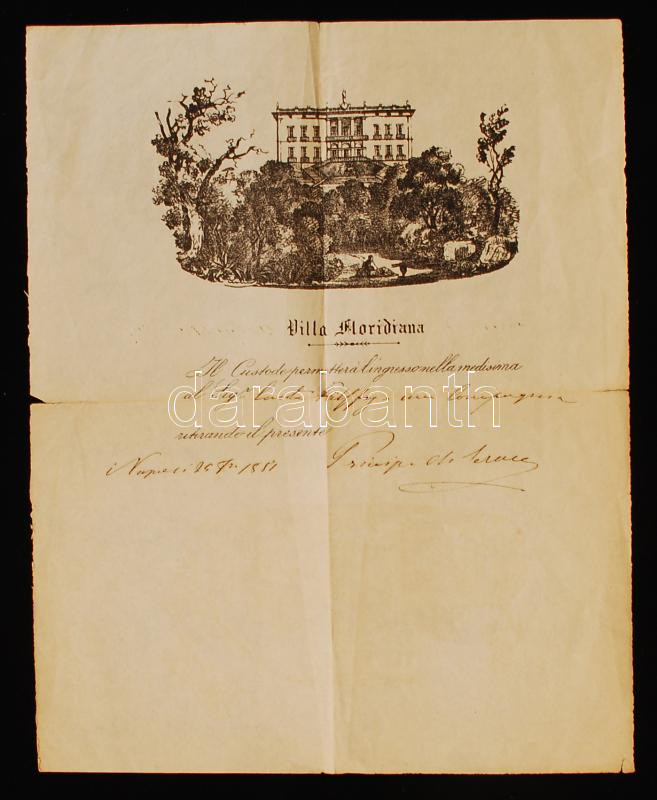 Villa Floridiana
Il Custode permetterà l'ingresso nella medesima
al Sigr Conte in Compagnia
ritirando il presente
Napoli 26 1881 Principe di Gerace
darabanth